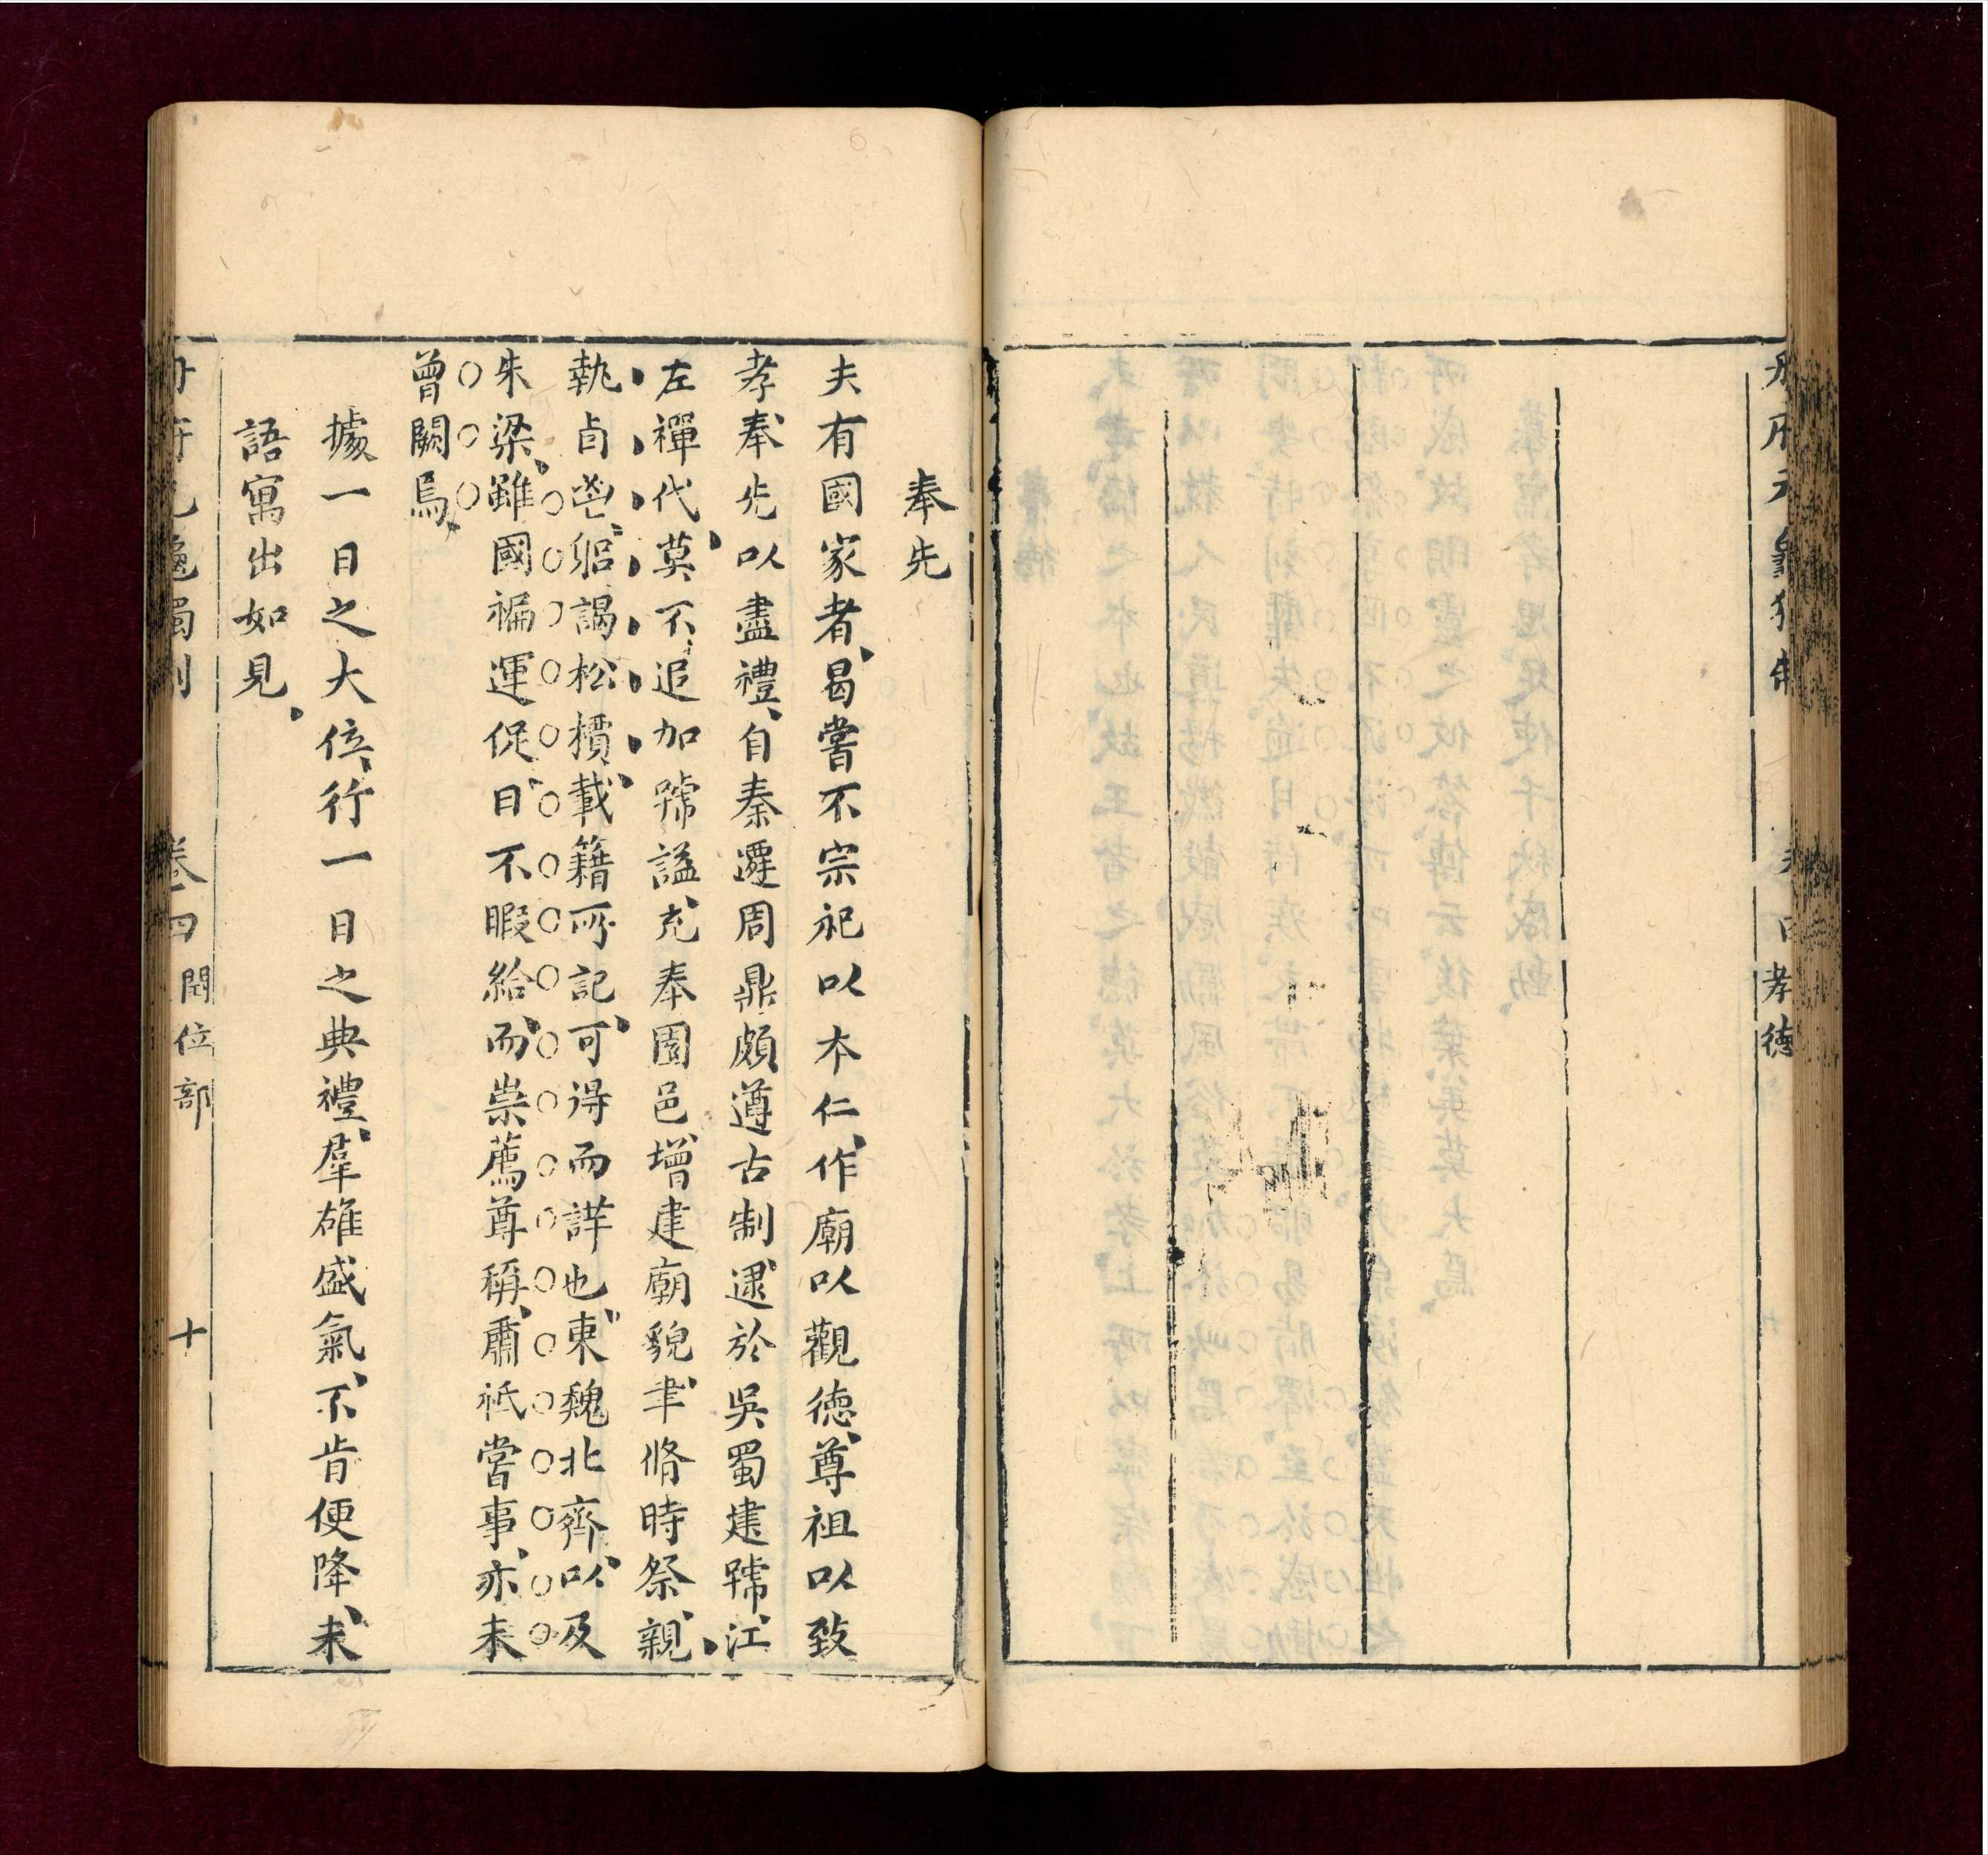 孝德
奉先
夫有國家者曷嘗不宗祀以本仁作廟以觀德尊祖以致
孝奉先以盡禮自秦遷周鼎頗遵古制逮於吳蜀建號江
左禪代莫不追加號謚充奉園邑增建廟貌聿脩時祭親
執卣鬯躬謁松檟載籍所記可得而詳也東魏北齊以及
朱梁雖國褊運促日不暇給而崇薦尊稱肅祗嘗事亦未
曾闕焉
據一日之大位行一日之典禮羣雄盛氣不肯便降未
語寓出如見
卷四 閏位部 十